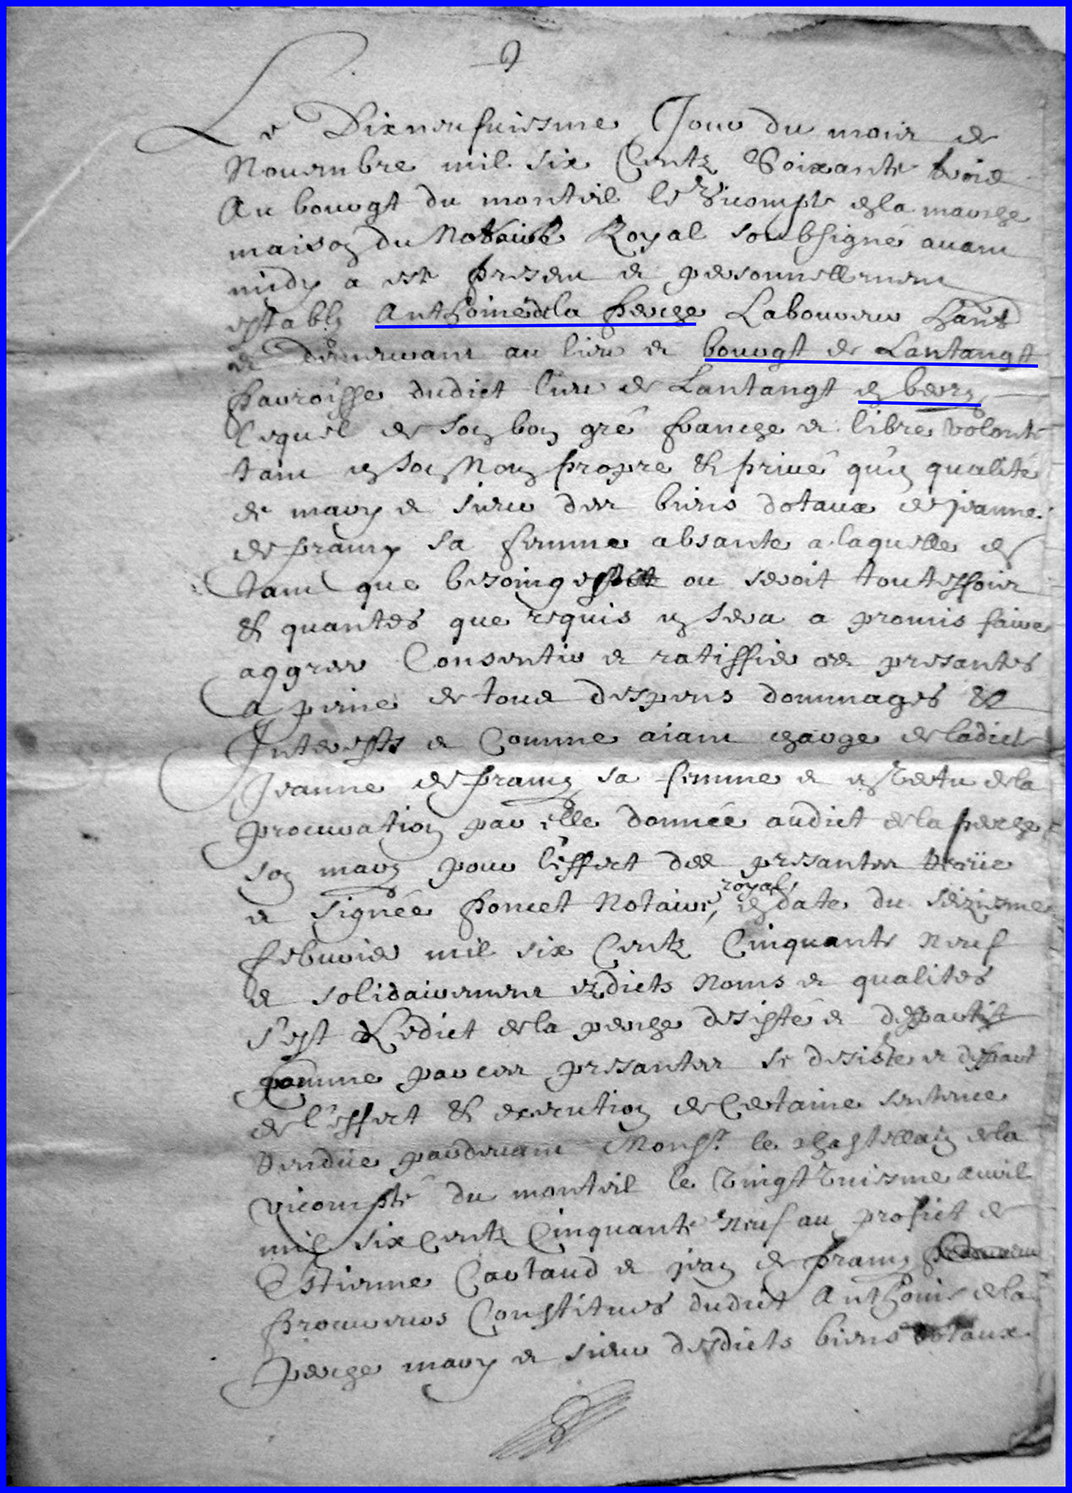 Le Dixneufuiesme Jour du mois de
Nouembre mil six Centz Soixante trois
Au bourgt du monteil le Vicompte & la maison
maison du Notaire Royal soubsigné auant
midy a esté present et personnellement
estably Anthoine de la perge Laboureur
et demeurant au lieu et bourgt de Lantangt
parroisse dudict lieu de Lantangt en berry
lequel de son bon gré franche et libre volonté
tant en son Nom propre & priué qu'en qualité
de mary et sieur des biens dotaux de jeanne
de framy sa femme absante a laquelle et
tant que besoing est ou seroit touteffois
& quantes que requis en sera a promis faire
aggreer Consentir et ratiffier ces presantes
a peine de tous despens dommages &
Interests et Comme aiant charge de ladicte
Jeanne de framy sa femme et en Vertu de la
procuration par elle donnée audict de la perge
son mary pour l'effect des presantes receüe
et signée poncet Notaire, royal, en date du seiziesme
febvrier mil six Centz Cinquante neuf
et solidairement esdicts Noms et qualités
s'est Ledict de la perge desisté et desparty
Comme par ces presantes se desiste et despart
de l'effect & execution de Certaine sentence
Rendüe pardeuant Monsr. le chastellain de la
vicompté du monteil le Vingt Vniesme auril
mil six Centz Cinquante Neuf au profict de
Estienne Cartaud et jean de framy
procureurs Constitués dudict Anthoine de la
perge mary et sieur desdicts biens dotaux